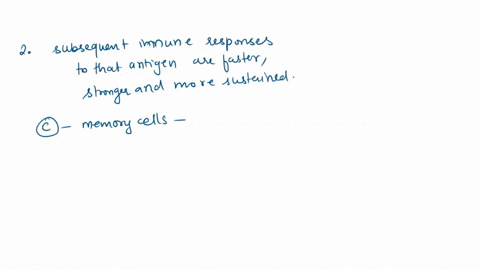 2. subsequent immune responses
to that antigen are faster,
stronger and more sustained.
C – memory cells –